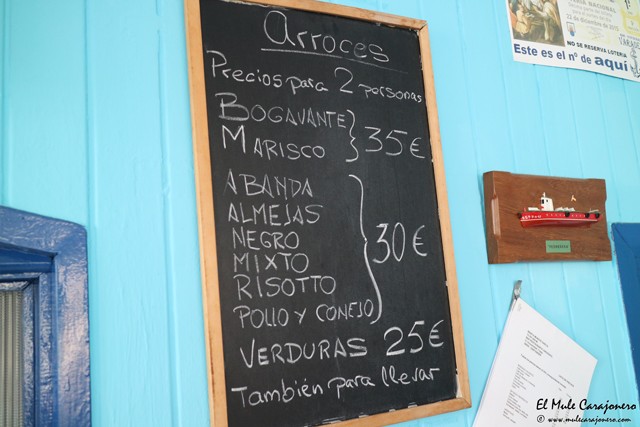 Arroces
Precios para 2 personas
BOGAVANTE
MARISCO
35€
ABANDA
ALMEJAS
NEGRO
MIXTO
RISOTTO
POLLO Y CONEJO
30€
VERDURAS 25€
También para llevar
25 de diciembre de
NO SE RESERVA LOTERIA
Este es el nº de aquí
El Mule Carajonero
© www.mulecarajonero.com